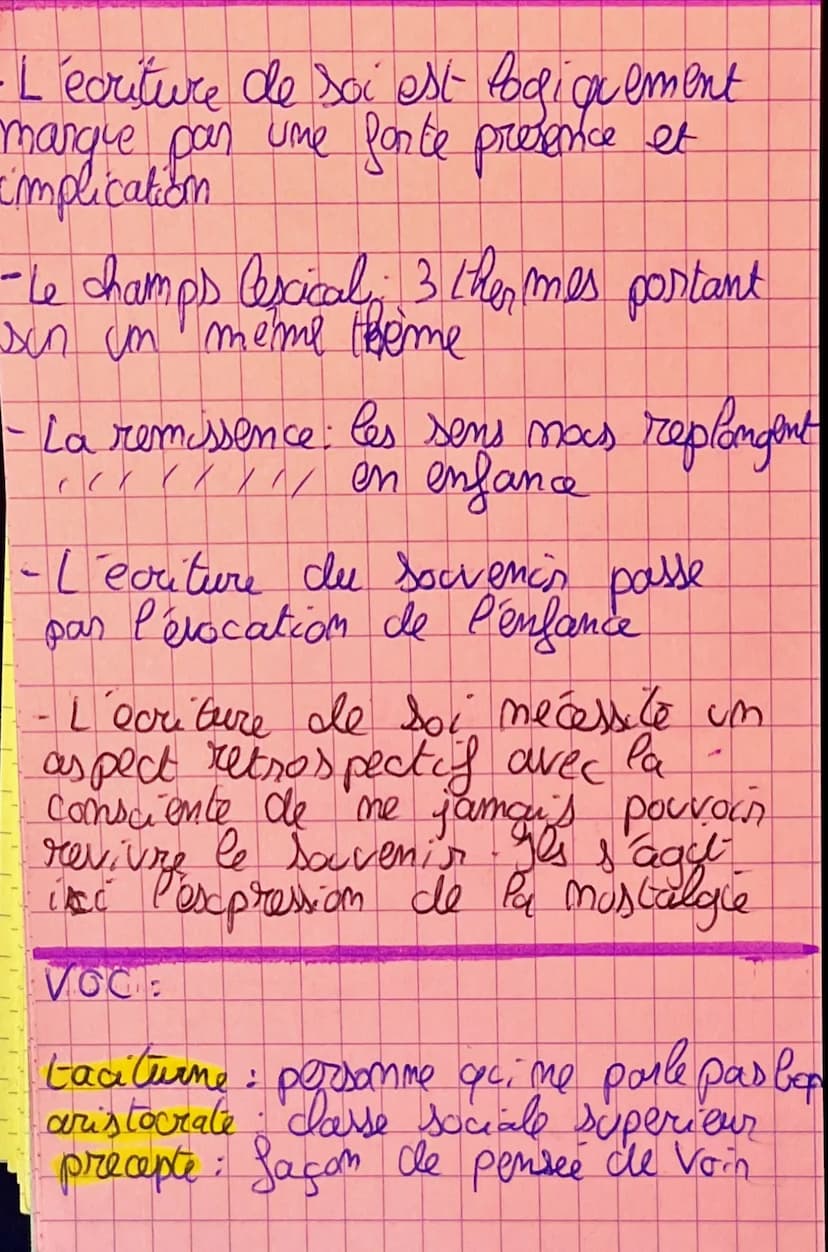 - L'ecriture de soi est logiquement
marque par une forte presence et
implication
- Le champs lescical : 3 thermes portant
sur un même thème
- La remissence : les sens nous replongent
en enfance
- L'ecriture du souvenir passe
par l'évocation de l'enfance
- L'ecriture de soi nécessité un
aspect retrospectif avec la
consciente de ne jamais pouvoir
revivre le souvenir. Ils s'agit
ici l'éscpression de la nostalgie
VOC :
taciturne : personne qui ne parle pas bcp
aristocrate : classe sociale superieur
precepte : façon de pensée de voir